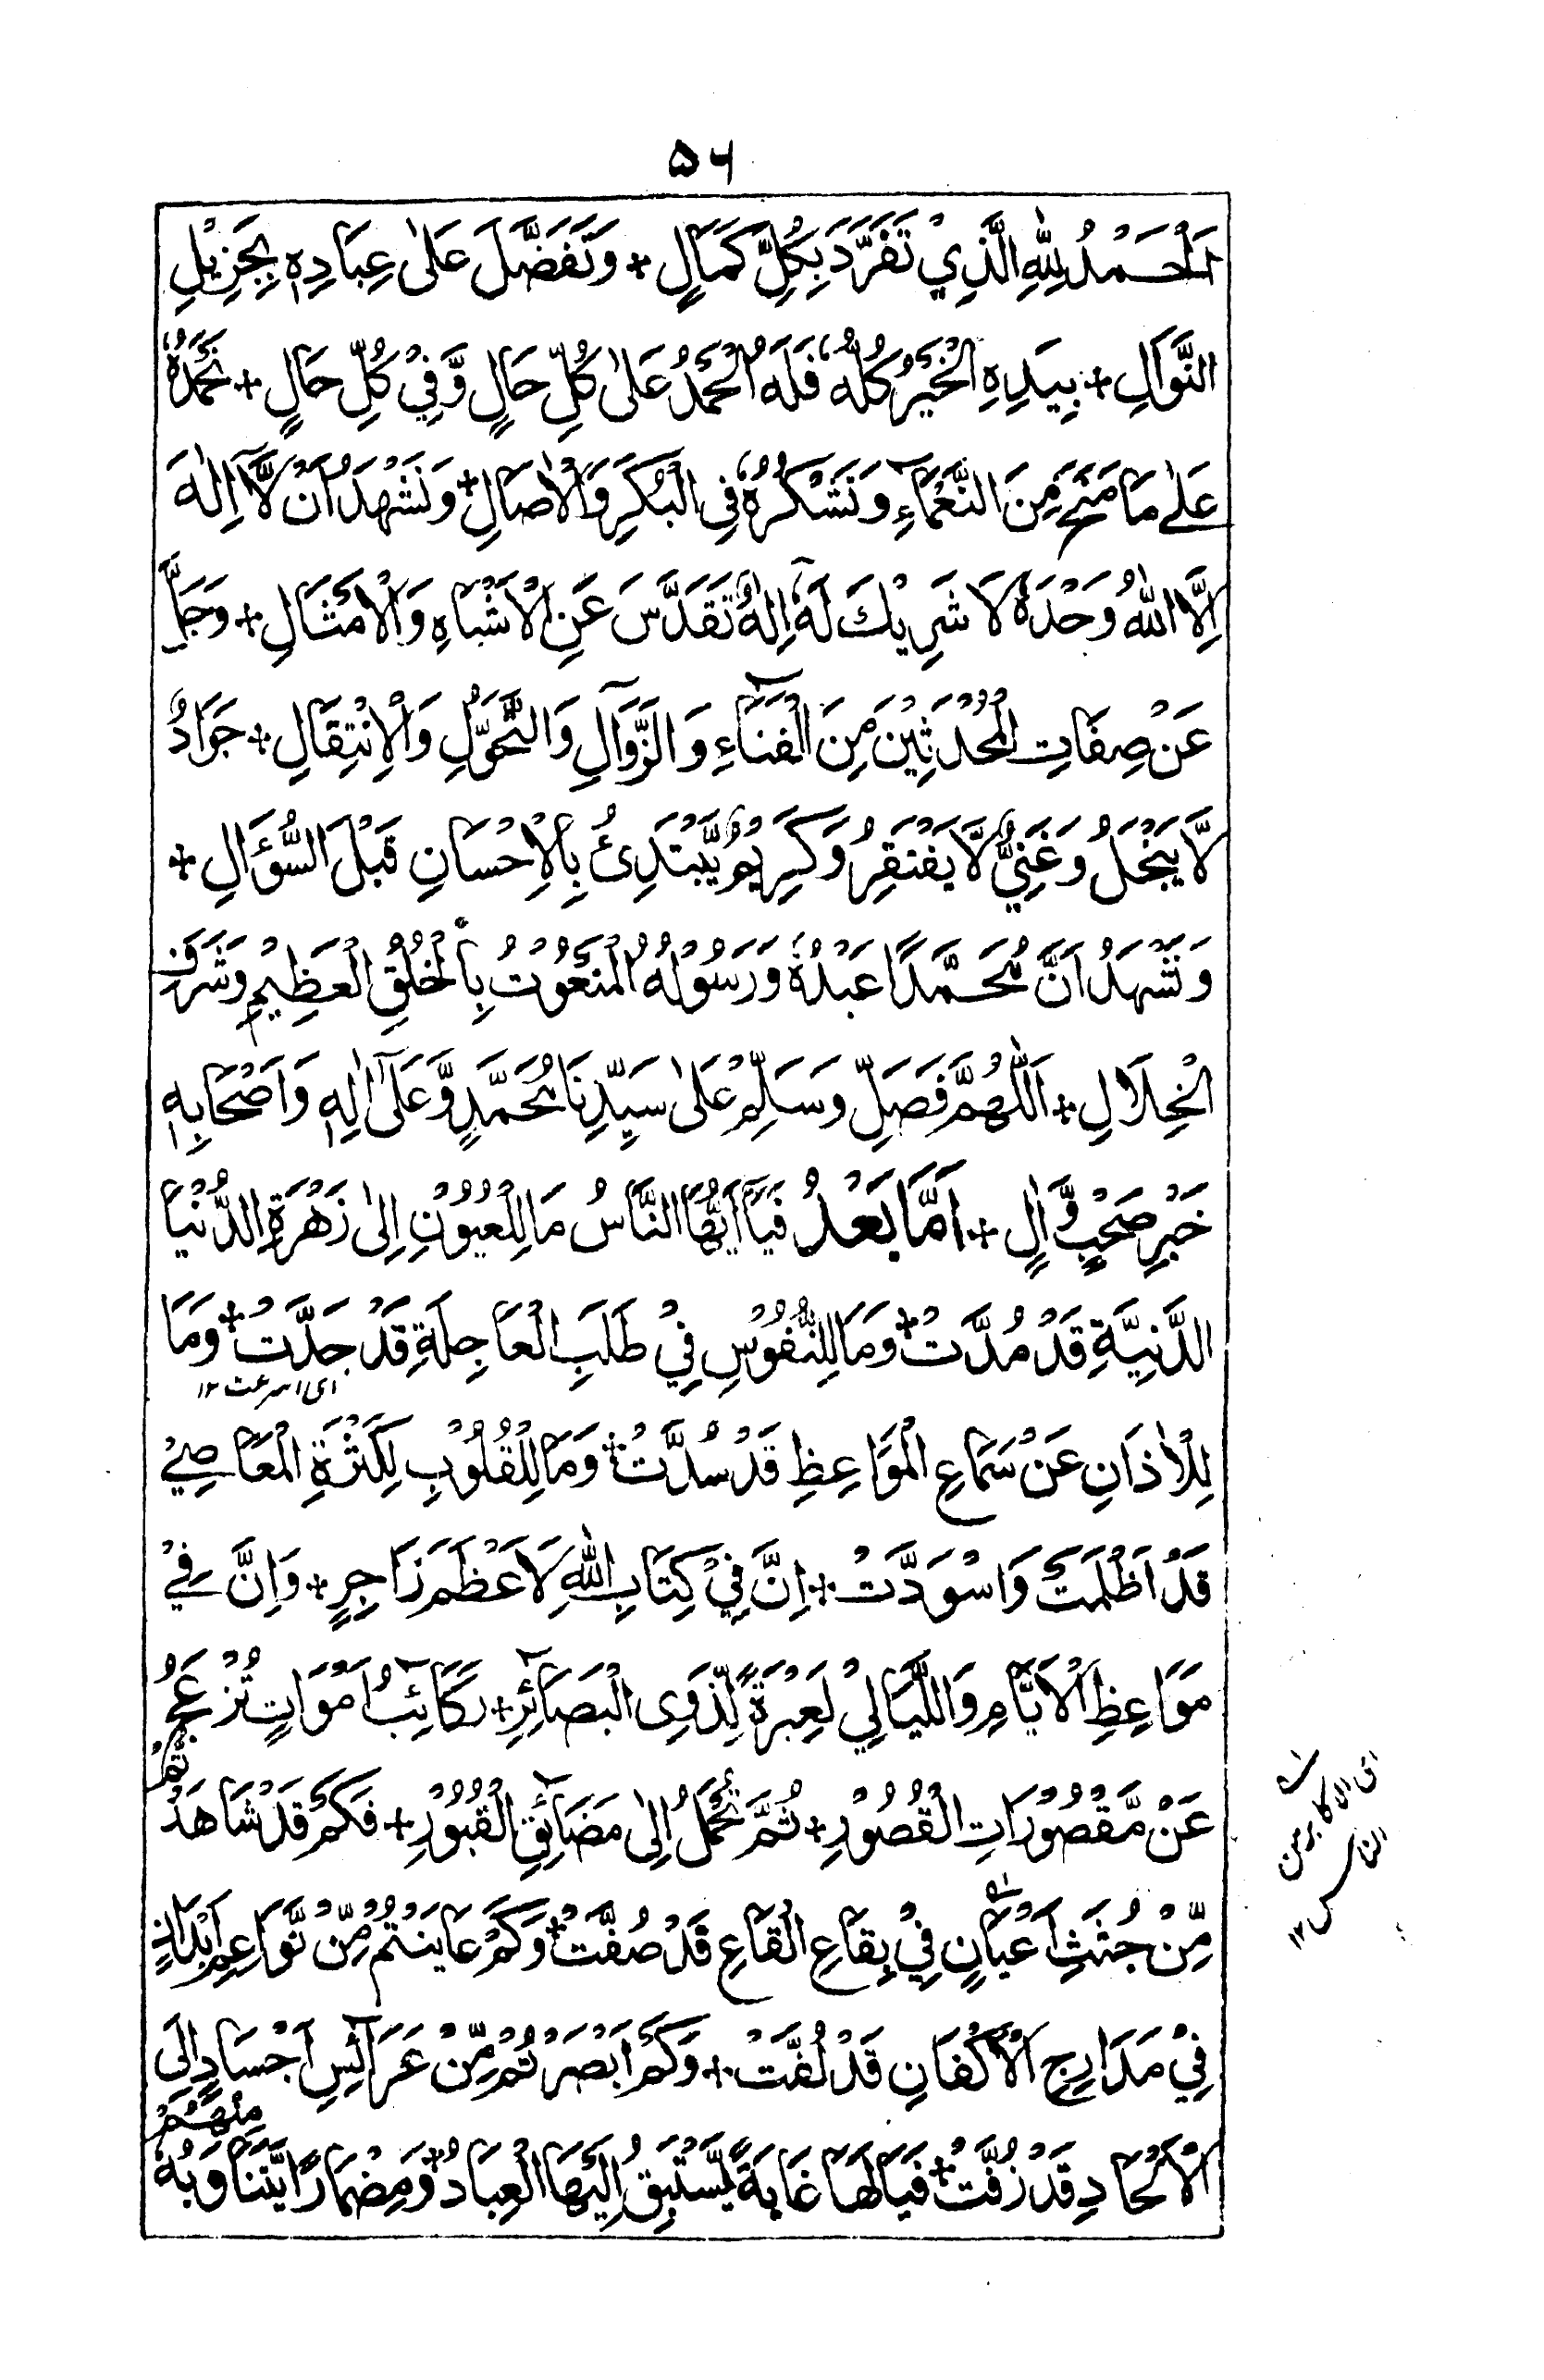 ۵۶
اَلْحَمْدُ لِلّٰهِ الَّذِيْ تَفَرَّدَ بِكُلِّ كَمَالٍ + وَتَفَضَّلَ عَلٰى عِبَادِهٖ بِجَزِيْلِ
النَّوَالِ + بِيَدِهِ الْخَيْرُ كُلُّهٗ فَلَهُ الْحَمْدُ عَلٰى كُلِّ حَالٍ وَّفِيْ كُلِّ حَالٍ + نَحْمَدُهٗ
عَلٰے مَا مَنَحَ مِنَ النَّعْمَآءِ وَنَشْكُرُهٗ فِى الْبُكَرِ وَالْاٰصَالِ + وَنَشْهَدُ اَنْ لَّآ اِلٰهَ
اِلَّا اللّٰهُ وَحْدَهٗ لَا شَرِيْكَ لَهٗٓ اِلٰهٌ تَقَدَّسَ عَنِ الْاَشْبَاهِ وَالْاَمْثَالِ + وَجَلَّ
عَنْ صِفَاتِ الْمُحْدَثِيْنَ مِنَ الْفَنَآءِ وَالزَّوَالِ وَالتَّحَوُّلِ وَالْاِنْتِقَالِ + جَوَادٌ
لَّا يَبْخَلُ وَغَنِيٌّ لَّا يَفْتَقِرُ وَكَرِيْمٌ يَّبْتَدِئُ بِالْاِحْسَانِ قَبْلَ السُّؤَالِ +
وَنَشْهَدُ اَنَّ مُحَمَّدًا عَبْدُهٗ وَرَسُوْلُهُ الْمَنْعُوْتُ بِالْخُلُقِ الْعَظِيْمِ وَشَرَفِ
الْخِلَالِ + اَللّٰهُمَّ فَصَلِّ وَسَلِّمْ عَلٰى سَيِّدِنَا مُحَمَّدٍ وَّعَلٰٓى اٰلِهٖ وَاَصْحَابِهٖ
خَيْرِ صَحْبٍ وَّاٰلٍ + اَمَّا بَعْدُ فَيَآ اَيُّهَا النَّاسُ مَا لِلْعُيُوْنِ اِلٰى زَهْرَةِ الدُّنْيَا
الدَّنِيَّةِ قَدْ مُدَّتْ + وَمَا لِلنُّفُوْسِ فِيْ طَلَبِ الْعَاجِلَةِ قَدْ جَدَّتْ + وَمَا
ای اسرعت ۱۲
لِلْاٰذَانِ عَنْ سَمَاعِ الْمَوَاعِظِ قَدْ سُدَّتْ + وَمَا لِلْقُلُوْبِ لِكَثْرَةِ الْمَعَاصِيْ
قَدْ اَظْلَمَتْ وَاسْوَدَّتْ + اِنَّ فِيْ كِتَابِ اللّٰهِ لَاَعْظَمَ زَاجِرٍ + وَاِنَّ فِيْ
مَوَاعِظِ الْاَيَّامِ وَاللَّيَالِيْ لَعِبْرَةً لِّذَوِى الْبَصَآئِرِ + رَكَآئِبُ اَمْوَاتٍ تُزْعَجُ
عَنْ مَّقْصُوْرَاتِ الْقُصُوْرِ + ثُمَّ تُحْمَلُ اِلٰى مَضَآئِقِ الْقُبُوْرِ + فَكَمْ قَدْ شَاهَدْتُّمْ
مِّنْ جُثَثِ اَعْيَانٍ فِيْ بِقَاعِ الْقَاعِ قَدْ صُفَّتْ + وَكَمْ عَايَنْتُمْ مِّنْ نَّوَاعِمِ اَبْدَانٍ
فِيْ مَدَارِجِ الْاَكْفَانِ قَدْ لُفَّتْ + وَكَمْ اَبْصَرْتُمْ مِّنْ عَرَآئِسِ اَجْسَادٍ اِلَى
الْاَلْحَادِ قَدْ زُفَّتْ + فَيَا لَهَا غَايَةً يَّسْتَبِقُ اِلَيْهَا الْعِبَادُ + وَمِضْمَارًا يَّتَنَاوَبُهٗ مِنْهُمْ
ای الاکابر من
الناس ۱۲